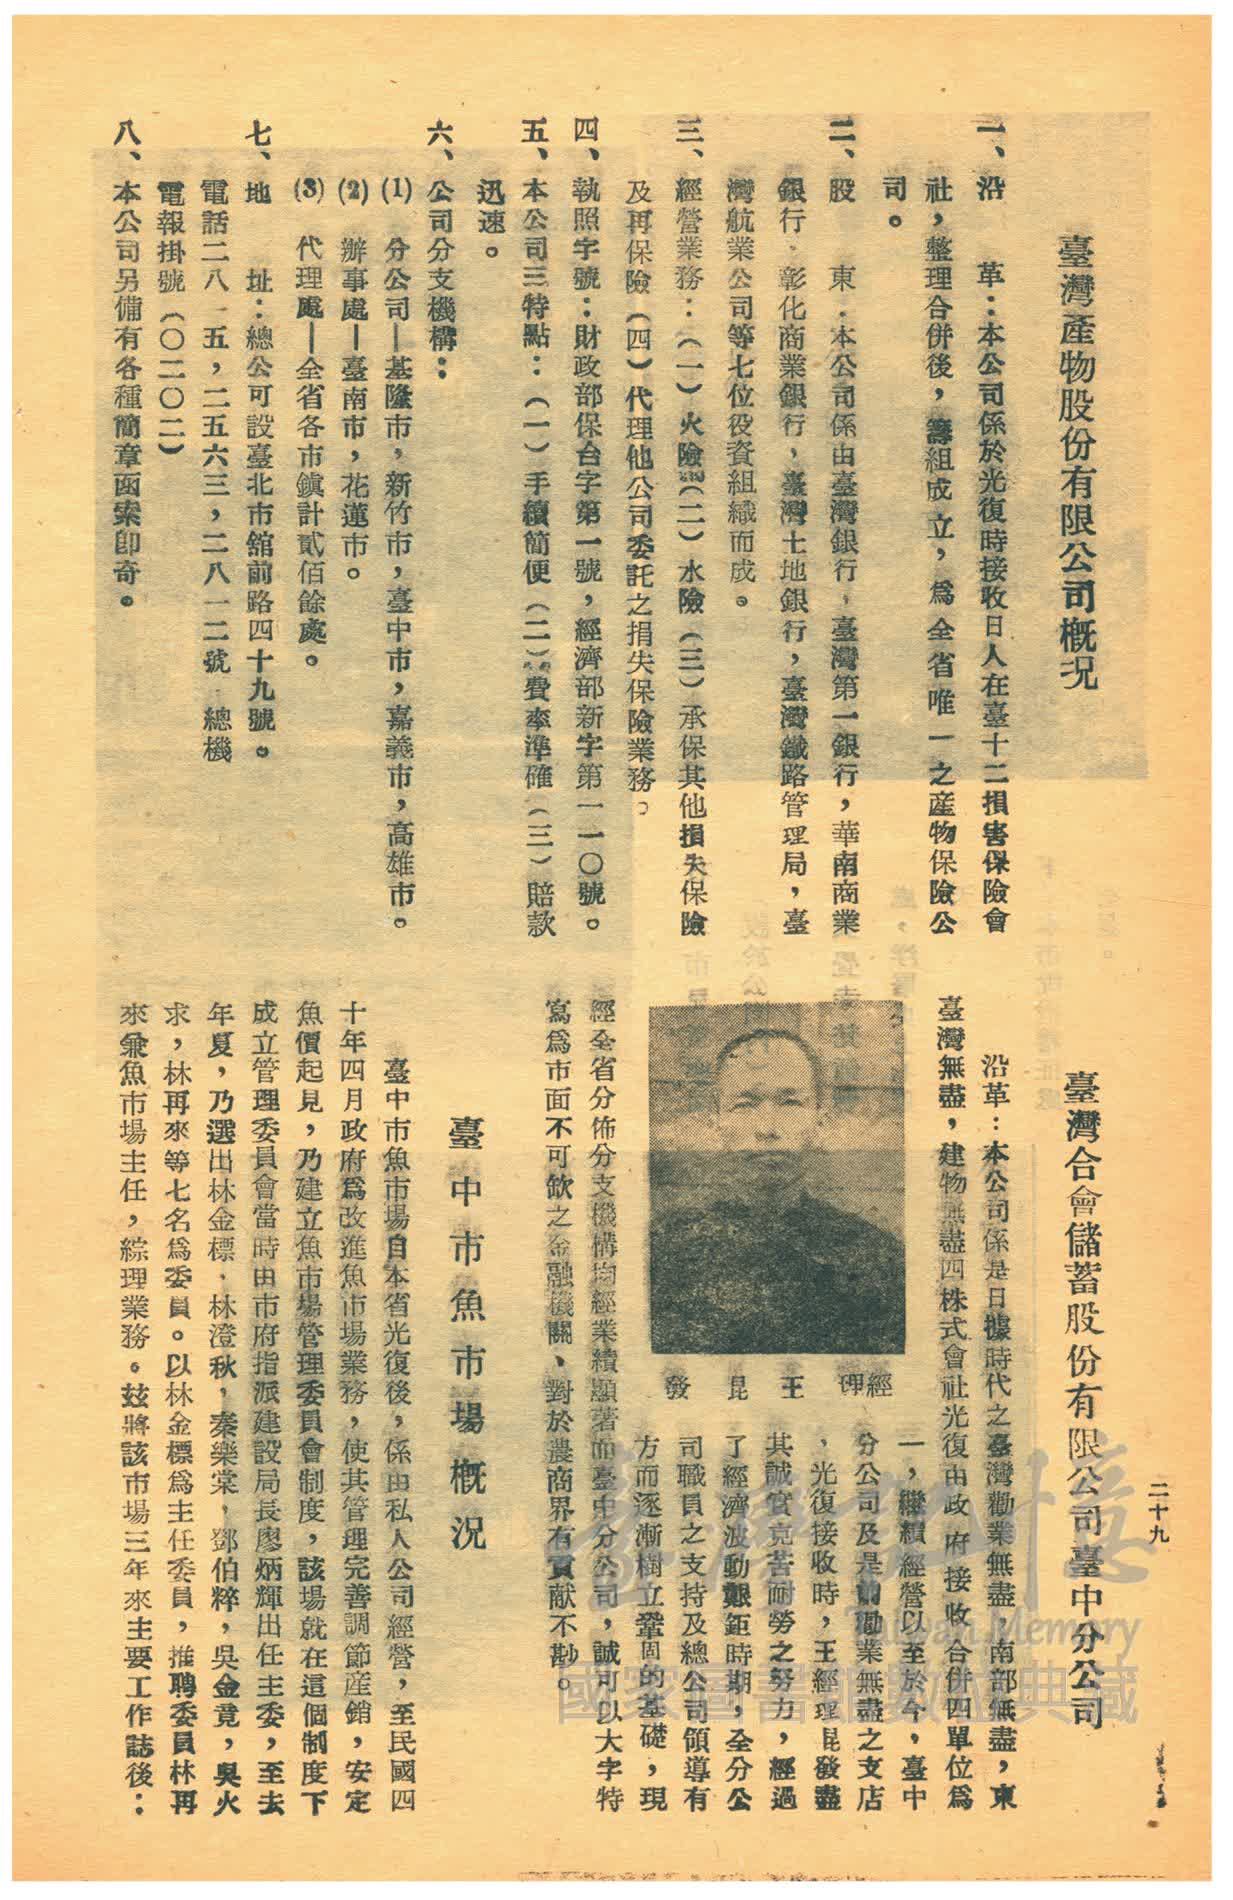 臺灣產物股份有限公司概況
一、沿　革：本公司係於光復時接收日人在臺十二損害保險會
社，整理合併後，籌組成立，為全省唯一之產物保險公
司。
二、股　東：本公司係由臺灣銀行，臺灣第一銀行，華南商業
銀行，彰化商業銀行，臺灣土地銀行，臺灣鐵路管理局，臺
灣航業公司等七位役資組織而成。
三、經營業務：（一）火險（二）水險（三）承保其他損失保險
及再保險（四）代理他公司委託之損失保險業務。
四、執照字號：財政部保台字第一號，經濟部新字第一一〇號。
五、本公司三特點：（一）手續簡便（二）費率準確（三）賠款
迅速。
六、公司分支機構：
(1)　分公司—基隆市，新竹市，臺中市，嘉義市，高雄市。
(2)　辦事處—臺南市，花蓮市。
(3)　代理處—全省各市鎮計貳佰餘處。
七、地　址：總公司設臺北市舘前路四十九號。
電話二八一五，二五六三，二八一二號　總機
電報掛號（〇二〇二）
八、本公司另備有各種簡章函索即寄。
二十九
臺灣合會儲蓄股份有限公司臺中分公司
沿革：本公司係是日據時代之臺灣勸業無盡，南部無盡，東
臺灣無盡，建物無盡四株式會社光復由政府接收合併四單位為
一，繼續經營以至於今，臺中
分公司及是前勸業無盡之支店
，光復接收時，王經理昆發盡
其誠實克苦耐勞之努力，經過
了經濟波動艱鉅時期，全分公
司職員之支持及總公司領導有
方而逐漸樹立鞏固的基礎，現
經理　王　昆　發
經全省分佈分支機構均經業績顯著而臺中分公司，誠可以大字特
寫為市面不可缺之金融機關、對於農商界有貢献不尠。
臺中市魚市場概況
臺中市魚市場自本省光復後，係由私人公司經營，至民國四
十年四月政府為改進魚市場業務，使其管理完善調節産銷，安定
魚價起見，乃建立魚市場管理委員會制度，該場就在這個制度下
成立管理委員會當時由市府指派建設局長廖炳輝出任主委，至去
年夏，乃選出林金標，林澄秋，秦樂棠，鄧伯粹，吳金竟，吳火
求，林再來等七名為委員。以林金標為主任委員，推聘委員林再
來兼魚市場主任，綜理業務。玆將該市場三年來主要工作誌後：
臺灣記憶
Taiwan Memory
國家圖書館數位典藏